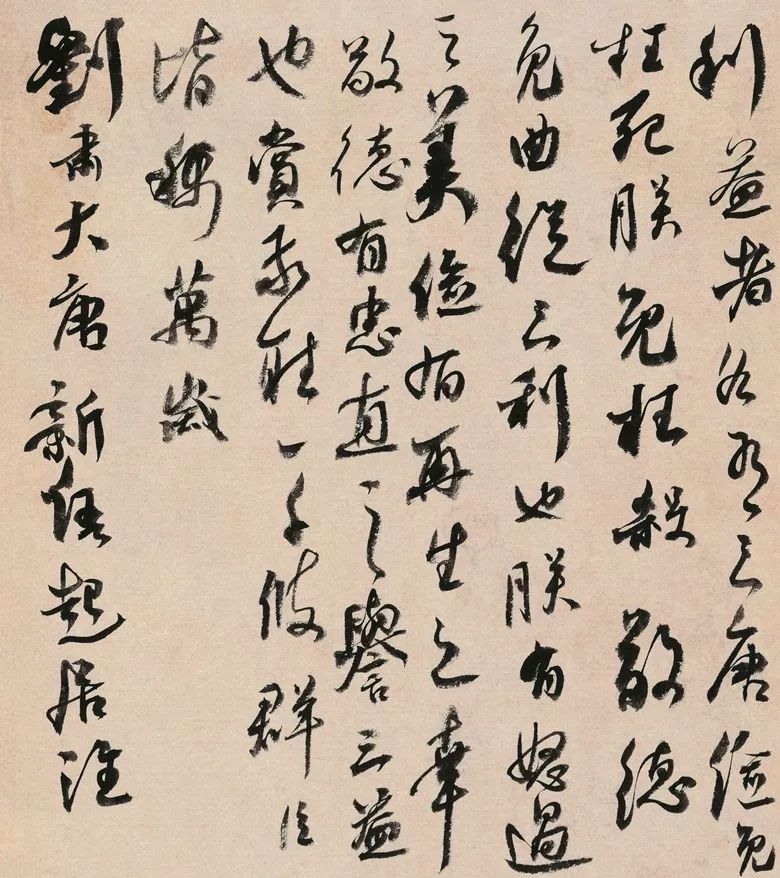 利益者各有三唐儉免
枉死朕免枉殺敬德
免曲從三利也朕有怒過
之美儉有再生之幸
敬德有忠直之譽三益
也賞一千段群臣
皆稱萬歲
劉肅大唐新語起居注